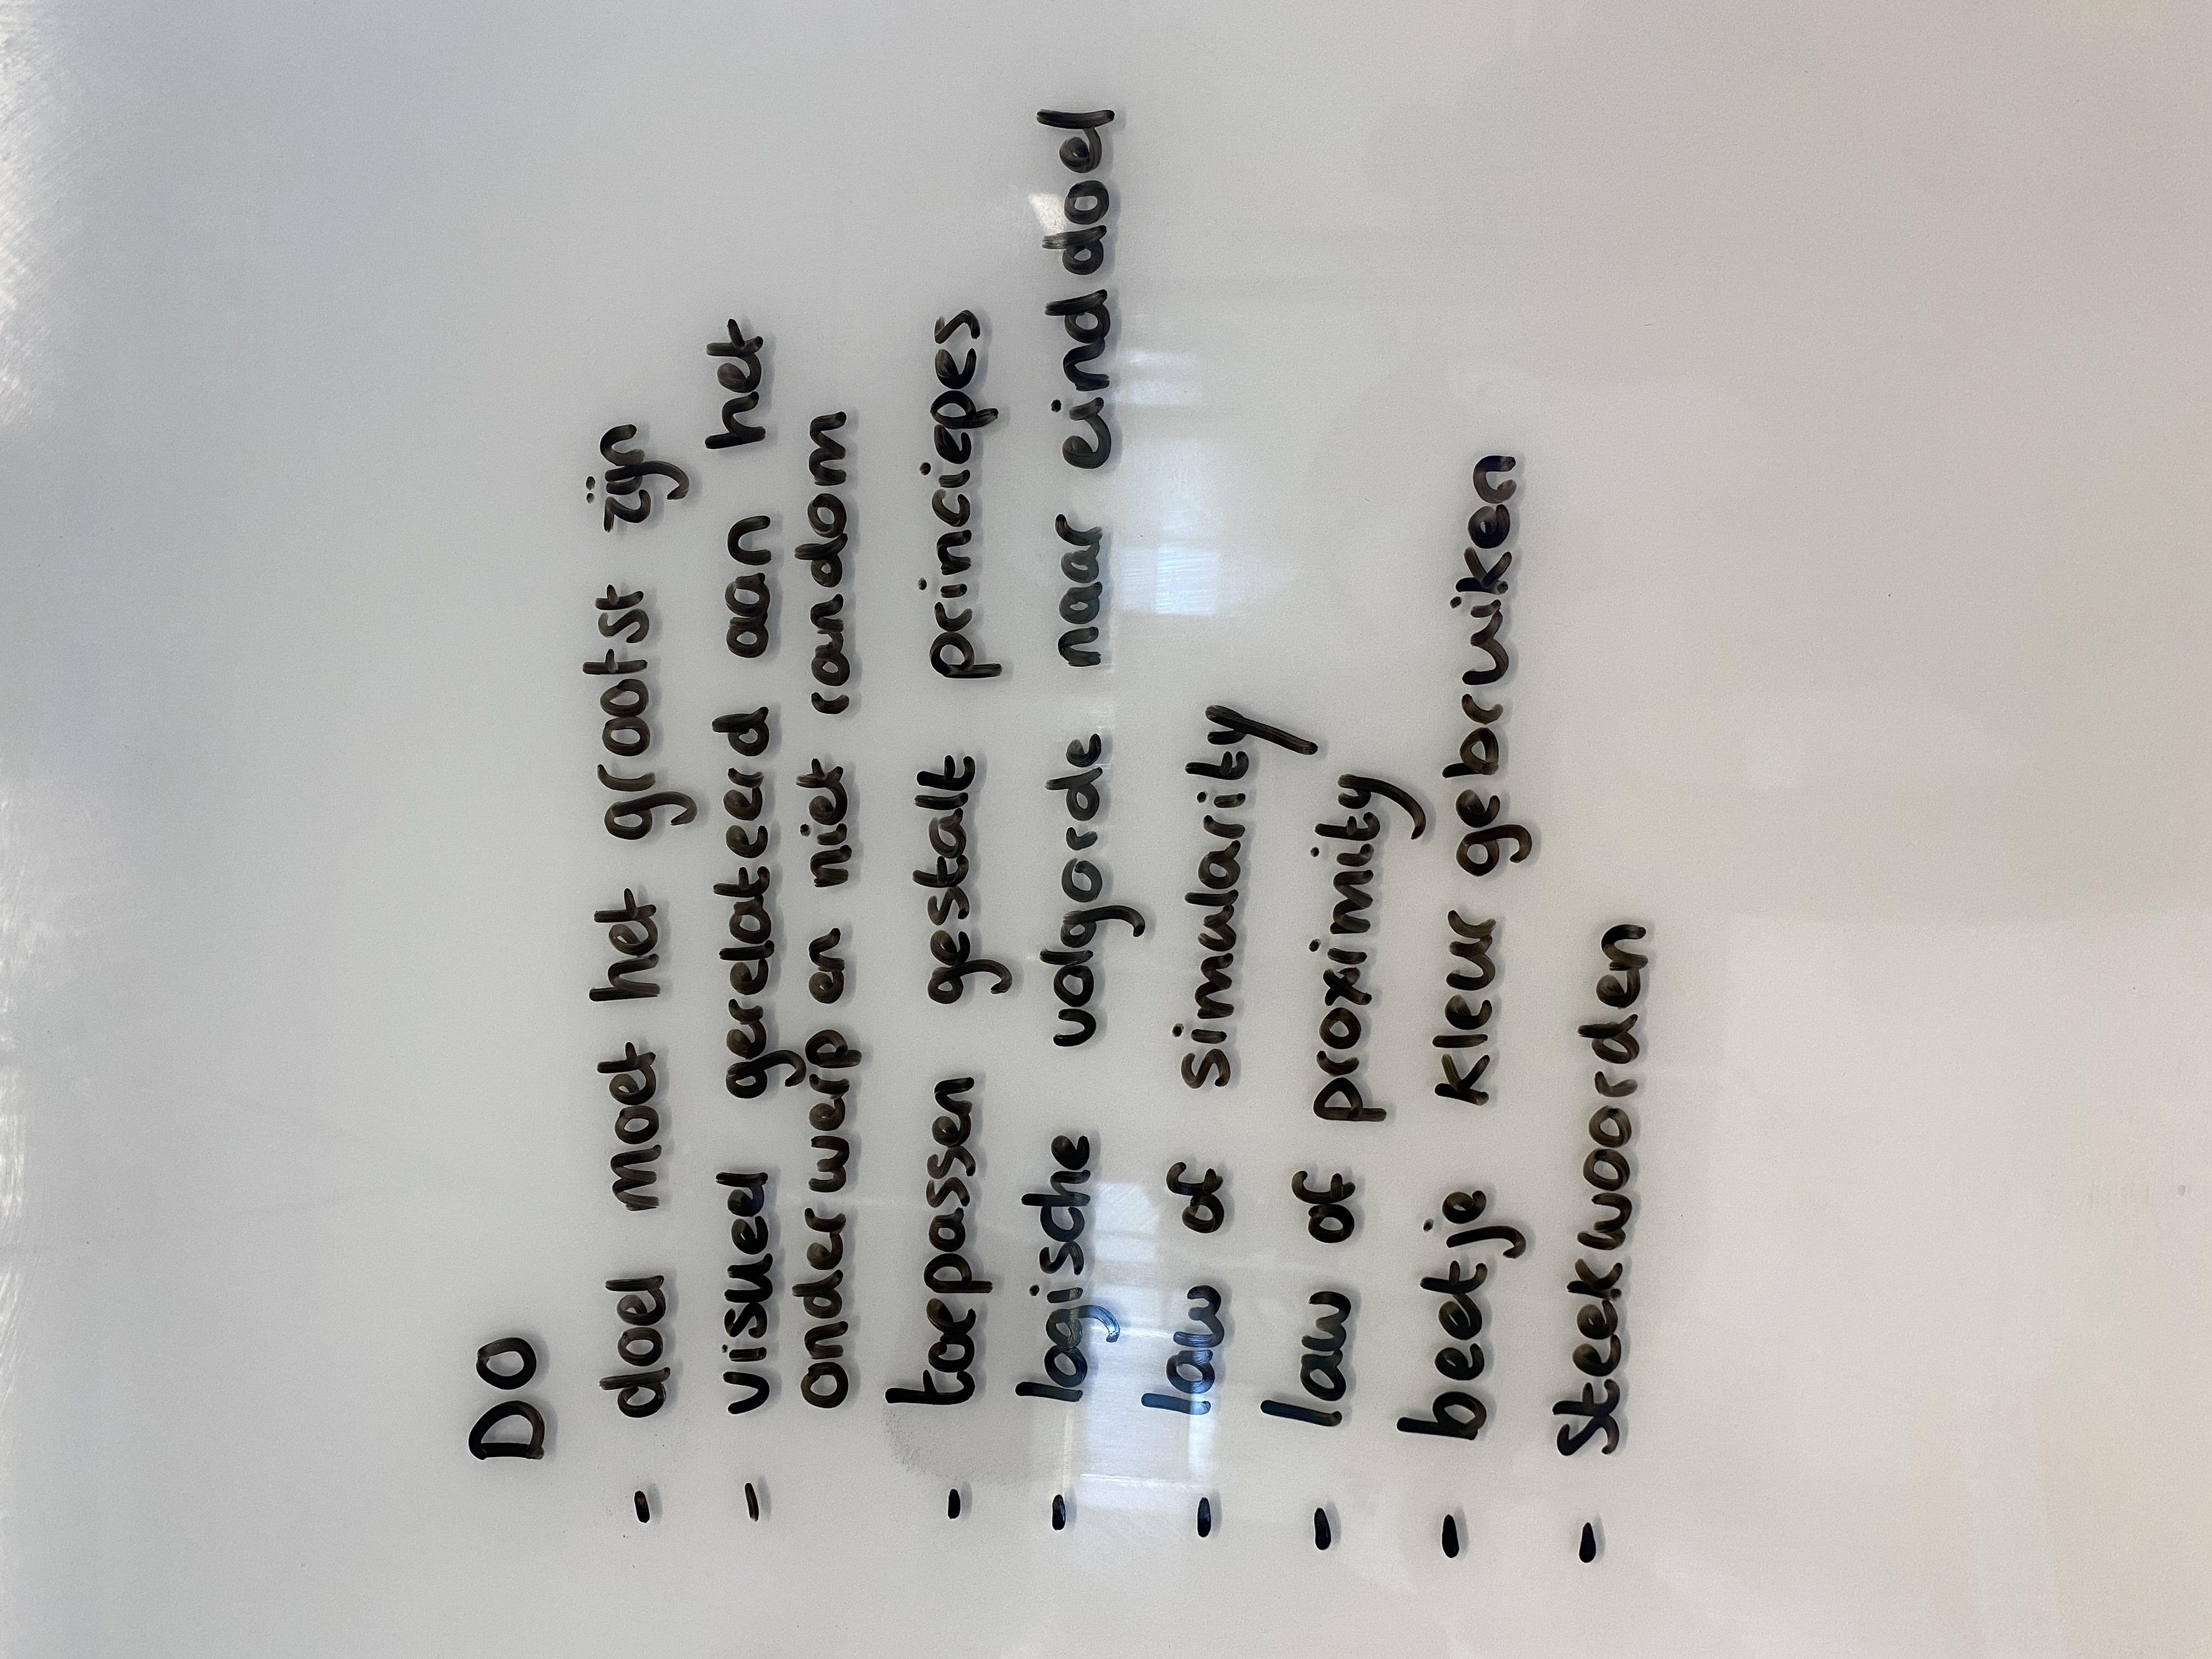 DO
- doel moet het grootst zijn
- visueel gerelateerd aan het
onderwerp en niet random
- toepassen gestalt princiepes
- logische volgorde naar einddoel
- law of simularity
- law of proximity
- beetje kleur gebruiken
- steekwoorden